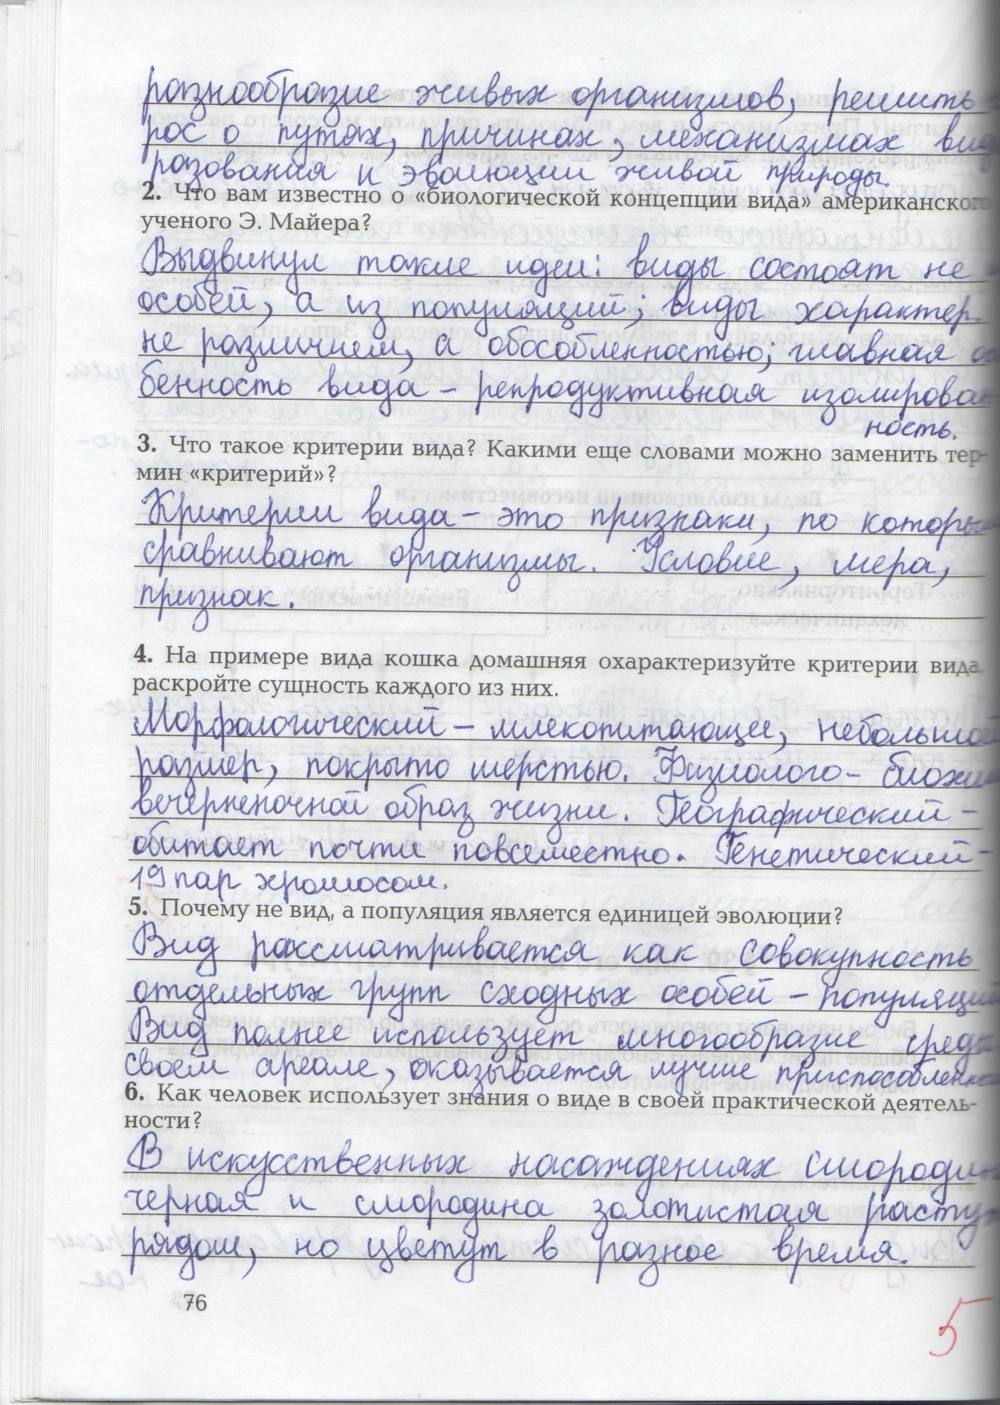 разнообразие живых организмов, решить
рос о путях, причинах, механизмах вид
разования и эволюции живой природы.
2. Что вам известно о «биологической концепции вида» американского
ученого Э. Майера?
Выдвинул такие идеи: виды состоят не
особей, а из популяций; виды характер.
не различием, а обособленностью; главная ос
бенность вида – репродуктивная изолирован
ность.
3. Что такое критерии вида? Какими еще словами можно заменить тер-
мин «критерий»?
Критерии вида – это признаки, по которым
сравнивают организмы. Условие, мера,
признак.
4. На примере вида кошка домашняя охарактеризуйте критерии вида
раскройте сущность каждого из них.
Морфологический – млекопитающее, небольшой
размер, покрыто шерстью. Физиолого – биохим
вечерненочной образ жизни. Географический –
обитает почти повсеместно. Генетический –
19 пар хромосом.
5. Почему не вид, а популяция является единицей эволюции?
Вид рассматривается как совокупность
отдельных групп сходных особей – популяций
Вид полнее использует многообразие среды
своем ареале, оказывается лучше приспособленно
6. Как человек использует знания о виде в своей практической деятель-
ности?
В искусственных насаждениях смородин
черная и смородина золотистая расту
рядом, но цветут в разное время.
76
5